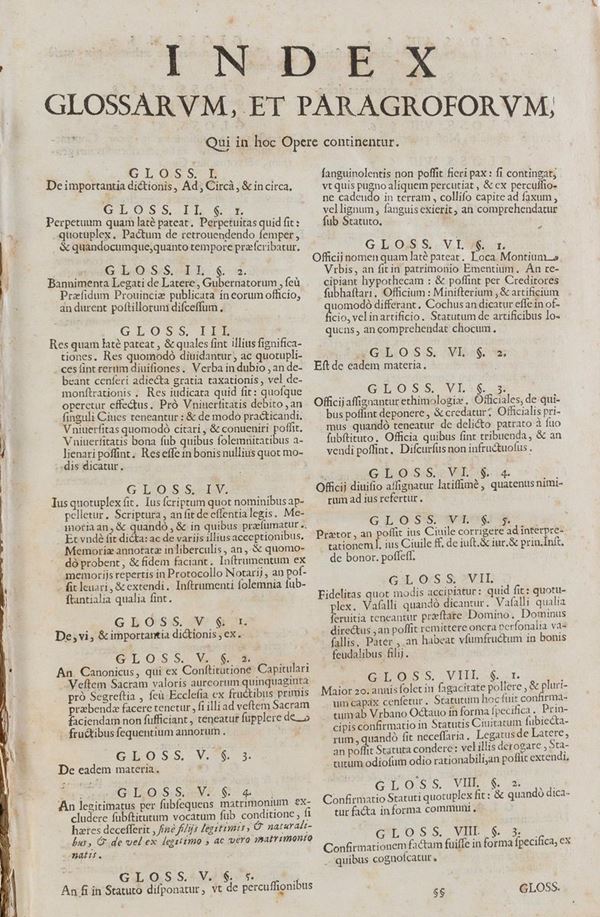 INDEX
GLOSSARVM, ET PARAGROFORVM,
Qui in hoc Opere continentur.
GLOSS. I.
De importantia dictionis, Ad, Circà, & in circa.
GLOSS. II. §. 1.
Perpetuum quam latè pateat. Perpetuitas quid sit:
quotuplex. Pactum de retrouendendo semper,
& quandocumque, quanto tempore præscribatur.
GLOSS. II. §. 2.
Bannimenta Legati de Latere, Gubernatorum, seù
Præsidum Prouinciæ publicata in eorum officio,
an durent post illorum discessum.
GLOSS. III.
Res quam latè pateat, & quales sint illius significa-
tiones. Res quomodò diuidantur, ac quotupli-
ces sint rerum diuisiones. Verba in dubio, an de-
beant censeri adiecta gratia taxationis, vel de-
monstrationis. Res iudicata quid sit: quosque
operetur effectus. Prò Vniuersitatis debito, an
singuli Ciues teneantur: & de modo practicandi.
Vniuersitas quomodò citari, & conueniri possit.
Vniuersitatis bona sub quibus solemnitatibus a-
lienari possint. Res esse in bonis nullius quot mo-
dis dicatur.
GLOSS. IV.
Ius quotuplex sit. Ius scriptum quot nominibus ap-
pelletur. Scriptura, an sit de essentia legis. Me-
moria an, & quandò, & in quibus præsumatur.
Et vndè sit dicta: ac de varijs illius acceptionibus.
Memoriæ annotatæ in liberculis, an, & quomo-
dò probent, & fidem faciant. Instrumentum ex
memorijs repertis in Protocollo Notarij, an pos-
sit leuari, & extendi. Instrumenti solemnia sub-
stantialia qualia sint.
GLOSS. V §. 1.
De, vi, & importantia dictionis, ex.
GLOSS. V. §. 2.
An Canonicus, qui ex Constitutione Capitulari
Vestem Sacram valoris aureorum quinquaginta
prò Segrestia, seù Ecclesia ex fructibus primis
præbendæ facere tenetur, si illi ad vestem Sacram
faciendam non sufficiant, teneatur supplere de
fructibus sequentium annorum.
GLOSS. V. §. 3.
De eadem materia.
GLOSS. V. §. 4.
An legitimatus per subsequens matrimonium ex-
cludere substitutum vocatum sub conditione, si
hæres decesserit, sinè filijs legitimis, & naturali-
bus, & de vel ex legitimo, ac vero matrimonio
natis.
GLOSS. V. §. 5.
An si in Statuto disponatur, vt de percussionibus
sanguinolentis non possit fieri pax: si contingat,
vt quis pugno aliquem percutiat, & ex percussio-
ne cadendo in terram, colliso capite ad saxum,
vel lignum, sanguis exierit, an comprehendatur
sub Statuto.
GLOSS. VI. §. 1.
Officij nomen quam latè pateat. Loca Montium
Vrbis, an sit in patrimonio Ementium. An re-
cipiant hypothecam: & possint per Creditores
subhastari. Officium: Ministerium, & artificium
quomodò differant. Cochus an dicatur esse in of-
ficio, vel in artificio. Statutum de artificibus lo-
quens, an comprehendat chocum.
GLOSS. VI. §. 2.
Est de eadem materia.
GLOSS. VI. §. 3.
Officij assignantur ethimologiæ. Officiales, de qui-
bus possint deponere, & credatur. Officialis pri-
mus quandò teneatur de delicto patrato à suo
substituto. Officia quibus sint tribuenda, & an
vendi possint. Discursus non infructuosus.
GLOSS. VI. §. 4.
Officij diuisio assignatur latissimè, quatenus nimi-
rum ad ius refertur.
GLOSS. VI. §. 5.
Prætor, an possit ius Ciuile corrigere ad interpre-
tationem l. ius Ciuile ff. de iust. & iur. & prin. Inst.
de bonor. possess.
GLOSS. VII.
Fidelitas quot modis accipiatur: quid sit: quotu-
plex. Vasalli quandò dicantur. Vasalli qualia
seruitia teneantur præstare Domino. Dominus
directus, an possit remittere onera personalia va-
sallis. Pater, an habeat vsumfructum in bonis
feudalibus filij.
GLOSS. VIII. §. 1.
Maior 20. annis solet in sagacitate pollere, & pluri-
um capax censetur. Statutum hoc fuit confirma-
tum ab Vrbano Octauo in forma specifica. Prin-
cipis confirmatio in Statutis Ciuitatum subiecta-
rum, quandò sit necessaria. Legatus de Latere,
an possit Statuta condere: vel illis derogare, Sta-
tutum odiosum odio rationabili, an possit extendi.
GLOSS. VIII. §. 2.
Confirmatio Statuti quotuplex sit: & quandò dica-
tur facta in forma communi.
GLOSS. VIII. §. 3.
Confirmationem factam fuisse in forma specifica, ex
quibus cognoscatur.
§§
GLOSS.